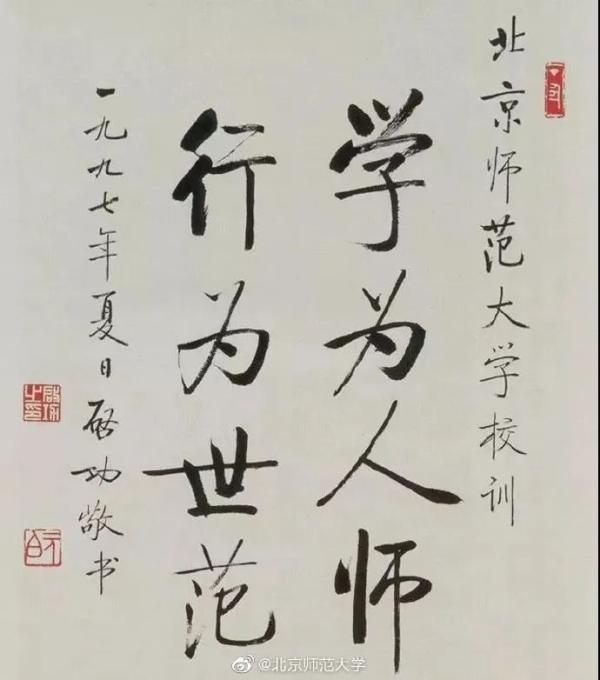 北京师范大学校训
学为人师
行为世范
一九九七年夏日启功敬书
启功之印
元白
@北京师范大学